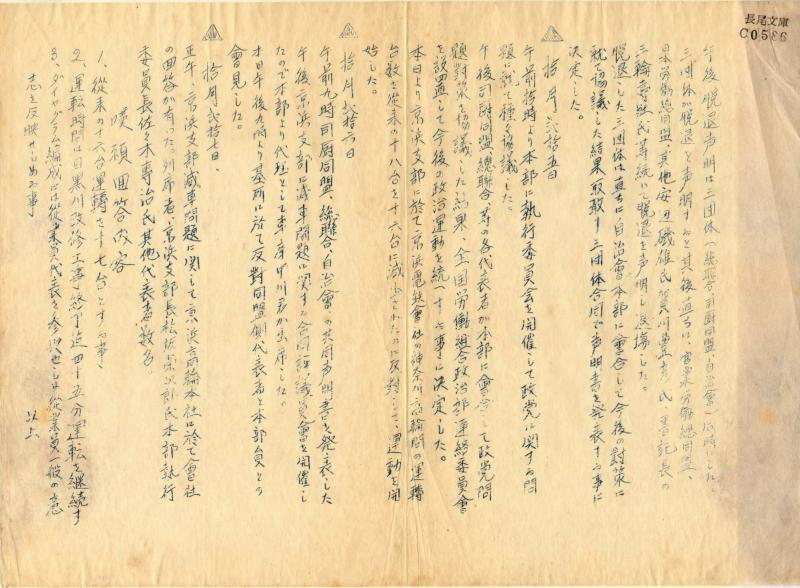 長尾文庫
C0586
午後脱退声明は三団体(総聯合司厨同盟、自治會)同時にした。
三団体が脱退を声明すると其後直ちに、官業労働総同盟、
日本労働総同盟、其他安部磯雄氏賀川豊彦氏、書記長の
三輪壽壮氏等続いて脱退を声明し退場した。
脱退した三団体は直ちに自治會本部に會合して今後の対策に
就て協議した結果取敢ず三団体合同で声明書を発表する事に
決定した。
拾月弐拾五日
午前拾時より本部に執行委員会を開催して政党に関する問
題に就て種々協議した。
午後司厨同盟、総聯合、等の各代表者が本部に會合して政党問
題対策を協議した結果、全国労働組合政治部連絡委員會
を設置して今後の政治運動を統一する事に決定した。
本日より京浜支部に於て京浜電鉄會社の神奈川高輪間の運轉
台数を従来の十八台を十六台に減少されたのに反対して、運動を開
始した。
拾月弐拾六日
午前九時司厨同盟、総聯合、自治會、の共同声明書を発表した
午後京浜支部に減車問題に関する合同評議員會を開催し
たので本部より代理として車庫中川君が出席した。
本日午後九時より墓所に於て反對同盟側代表者と本部員との
會見した。
拾月弐拾七日、
正午、京浜支部減車問題に関して京浜高輪本社に於て會社
の回答が有った列席者、京浜支部長松坂榮次郎氏本部執行
委員長佐々木専治氏其他代表者数名。
嘆願回答内容
1、從来の十六台運轉を十七台とする事、
2、運転時間は目黒川改修工事終了迄四十五分運転を継続す
3、ダイヤグラム編成には從業員代表を参加せしめ從業員一般の意
志を反映せしめる事
以上